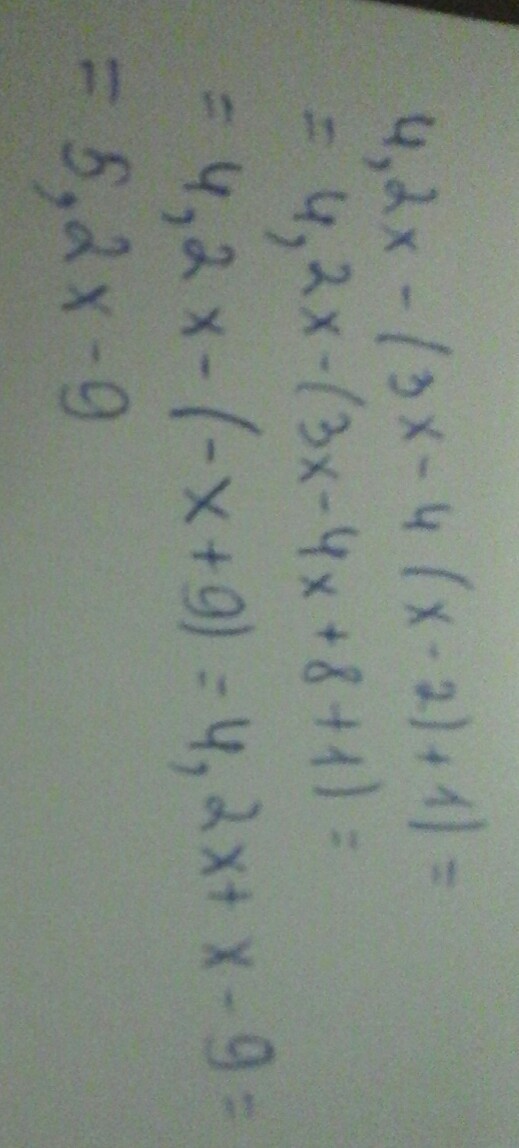 4,2x - (3x - 4(x - 2) + 1) =
= 4,2x - (3x - 4x + 8 + 1) =
= 4,2x - (-x + 9) = 4,2x + x - 9 =
= 5,2x - 9